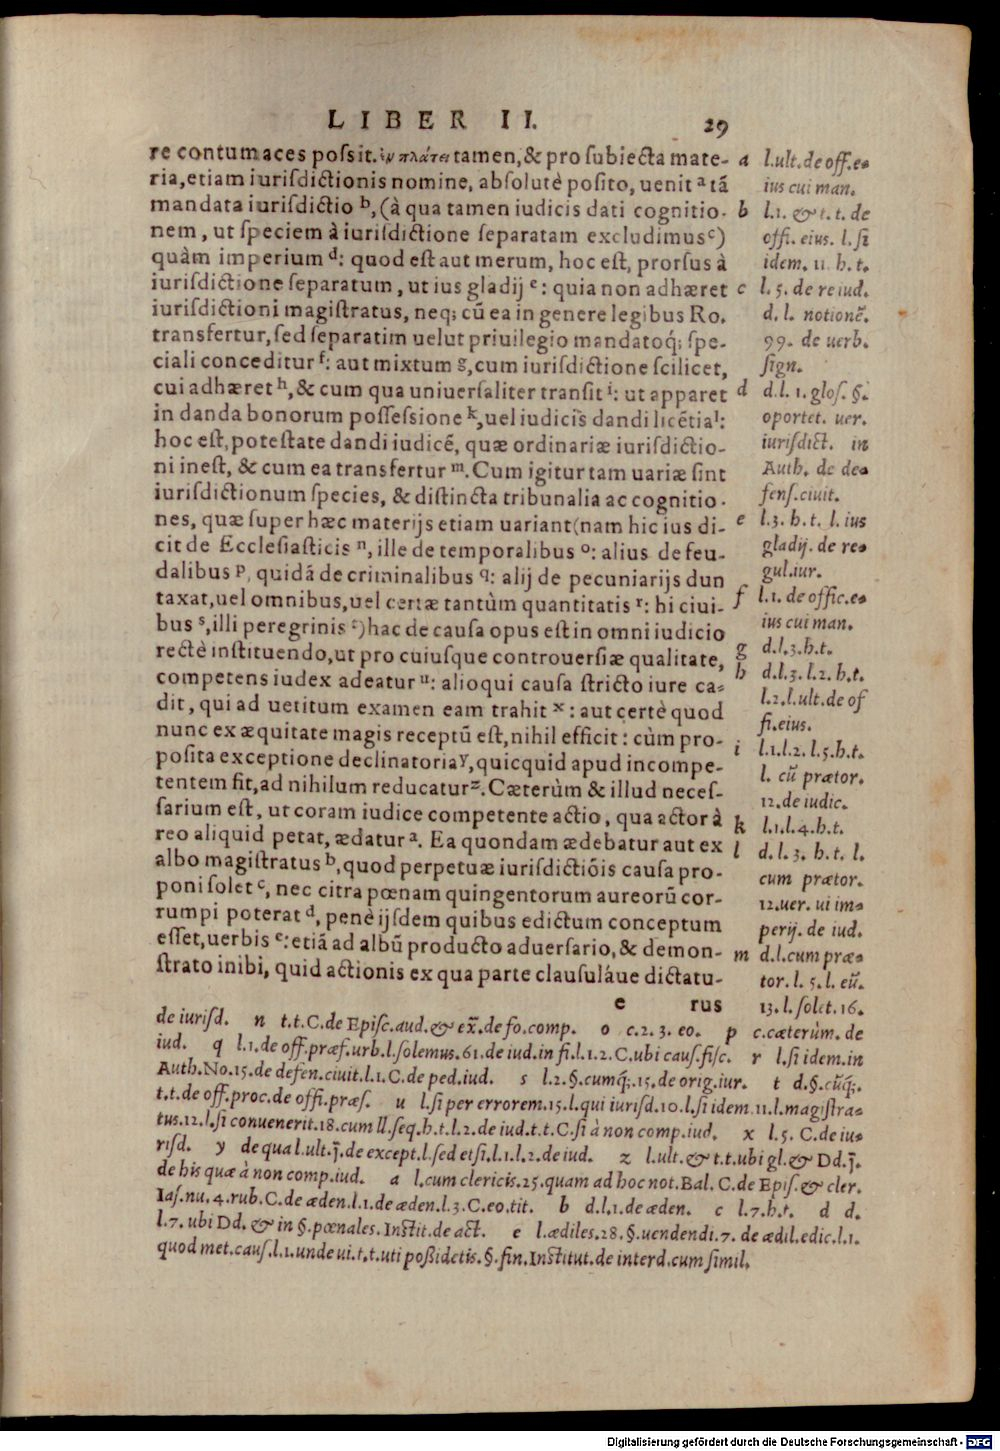 LIBER II. 29
re contumaces possit. ἐν πλάτει tamen, & pro subiecta mate-
ria, etiam iurisdictionis nomine, absolutè posito, uenit a tã
mandata iurisdictio b, (à qua tamen iudicis dati cognitio-
nem, ut speciem à iurisdictione separatam excludimus c)
quàm imperium d: quod est aut merum, hoc est, prorsus à
iurisdictione separatum, ut ius gladij e: quia non adhæret
iurisdictioni magistratus, neq; cũ ea in genere legibus Ro.
transfertur, sed separatim uelut priuilegio mandatoq́; spe-
ciali conceditur f: aut mixtum g, cum iurisdictione scilicet,
cui adhæret h, & cum qua uniuersaliter transit i: ut apparet
in danda bonorum possessione k, uel iudicis dandi licẽtia l:
hoc est, potestate dandi iudicẽ, quæ ordinariæ iurisdictio-
ni inest, & cum ea transfertur m. Cum igitur tam uariæ sint
iurisdictionum species, & distincta tribunalia ac cognitio-
nes, quæ super hæc materijs etiam uariant (nam hic ius di-
cit de Ecclesiasticis n, ille de temporalibus o: alius de feu-
dalibus p, quidã de criminalibus q: alij de pecuniarijs dun
taxat, uel omnibus, uel certæ tantùm quantitatis r: hi ciui-
bus s, illi peregrinis t) hac de causa opus est in omni iudicio
rectè instituendo, ut pro cuiusque controuersiæ qualitate,
competens iudex adeatur u: alioqui causa stricto iure ca-
dit, qui ad uetitum examen eam trahit x: aut certè quod
nunc ex æquitate magis receptũ est, nihil efficit: cùm pro-
posita exceptione declinatoria y, quicquid apud incompe-
tentem fit, ad nihilum reducatur z. Cæterùm & illud neces-
sarium est, ut coram iudice competente actio, qua actor à
reo aliquid petat, ædatur a. Ea quondam ædebatur aut ex
albo magistratus b, quod perpetuæ iurisdictiõis causa pro-
poni solet c, nec citra pœnam quingentorum aureorũ cor-
rumpi poterat d, penè ijsdem quibus edictum conceptum
esset, uerbis e: etiã ad albũ producto aduersario, & demon-
strato inibi, quid actionis ex qua parte clausuláue dictatu-
e rus
a l.ult. de off.e-
ius cui man.
b l.1. & t. t. de
offi. eius. l. si
idem. 11. h. t.
c l. 5. de re iud.
d. l. notionẽ.
99. de uerb.
sign.
d d.l. 1. glos. §.
oportet. uer.
iurisdict. in
Auth. de de-
fens.ciuit.
e l.3. h.t. l. ius
gladij. de re-
gul.iur.
f l.1. de offic.e-
ius cui man.
g d.l.3.h.t.
h d.l.3. l.2. h.t.
l.2.l.ult.de of
fi.eius.
i l.1.l.2. l.5.h.t.
l. cũ prætor.
12.de iudic.
k l.1.l.4.h.t.
l d. l. 3. h. t. l.
cum prætor.
12.uer. ui im-
perij. de iud.
m d.l.cum præ-
tor. l. 5. l. eũ.
13. l. solet. 16.
de iurisd. n t.t.C.de Episc.aud.& ex̃.de fo.comp. o c.2.3. eo. p c.cæterùm. de
iud. q l.1.de off.præf.urb.l.solemus.61.de iud.in fi.l.1.2.C.ubi caus.fisc. r l.si idem.in
Auth.No.15.de defen.ciuit.l.1.C.de ped.iud. s l.2.§.cumq́;.15.de orig.iur. t d.§.cũq́;.
t.t.de off.proc.de offi.præs. u l.si per errorem.15.l.qui iurisd.10.l.si idem.11.l.magistra-
tus.12.l.si conuenerit.18.cum ll.seq.h.t.l.2.de iud.t.t.C.si à non comp.iud. x l.5. C.de iu-
risd. y de qua l.ult.j̃.de except.l.sed etsi.l.1.l.2.de iud. z l.ult.& t.t.ubi gl.& Dd.j̃.
de his quæ à non comp.iud. a l.cum clericis.25.quam ad hoc not.Bal.C.de Epis.& cler.
Ias.nu.4.rub.C.de æden.l.1.de æden.l.3.C.eo.tit. b d.l.1.de æden. c l.7.h.t. d d.
l.7.ubi Dd.& in §.pœnales.Instit.de act. e l.ædiles.28.§.uendendi.7. de ædil.edic.l.1.
quod met.caus.l.1.unde ui.t.t.uti possidetis.§.fin.Institut.de interd.cum simil.
Digitalisierung gefördert durch die Deutsche Forschungsgemeinschaft - DFG